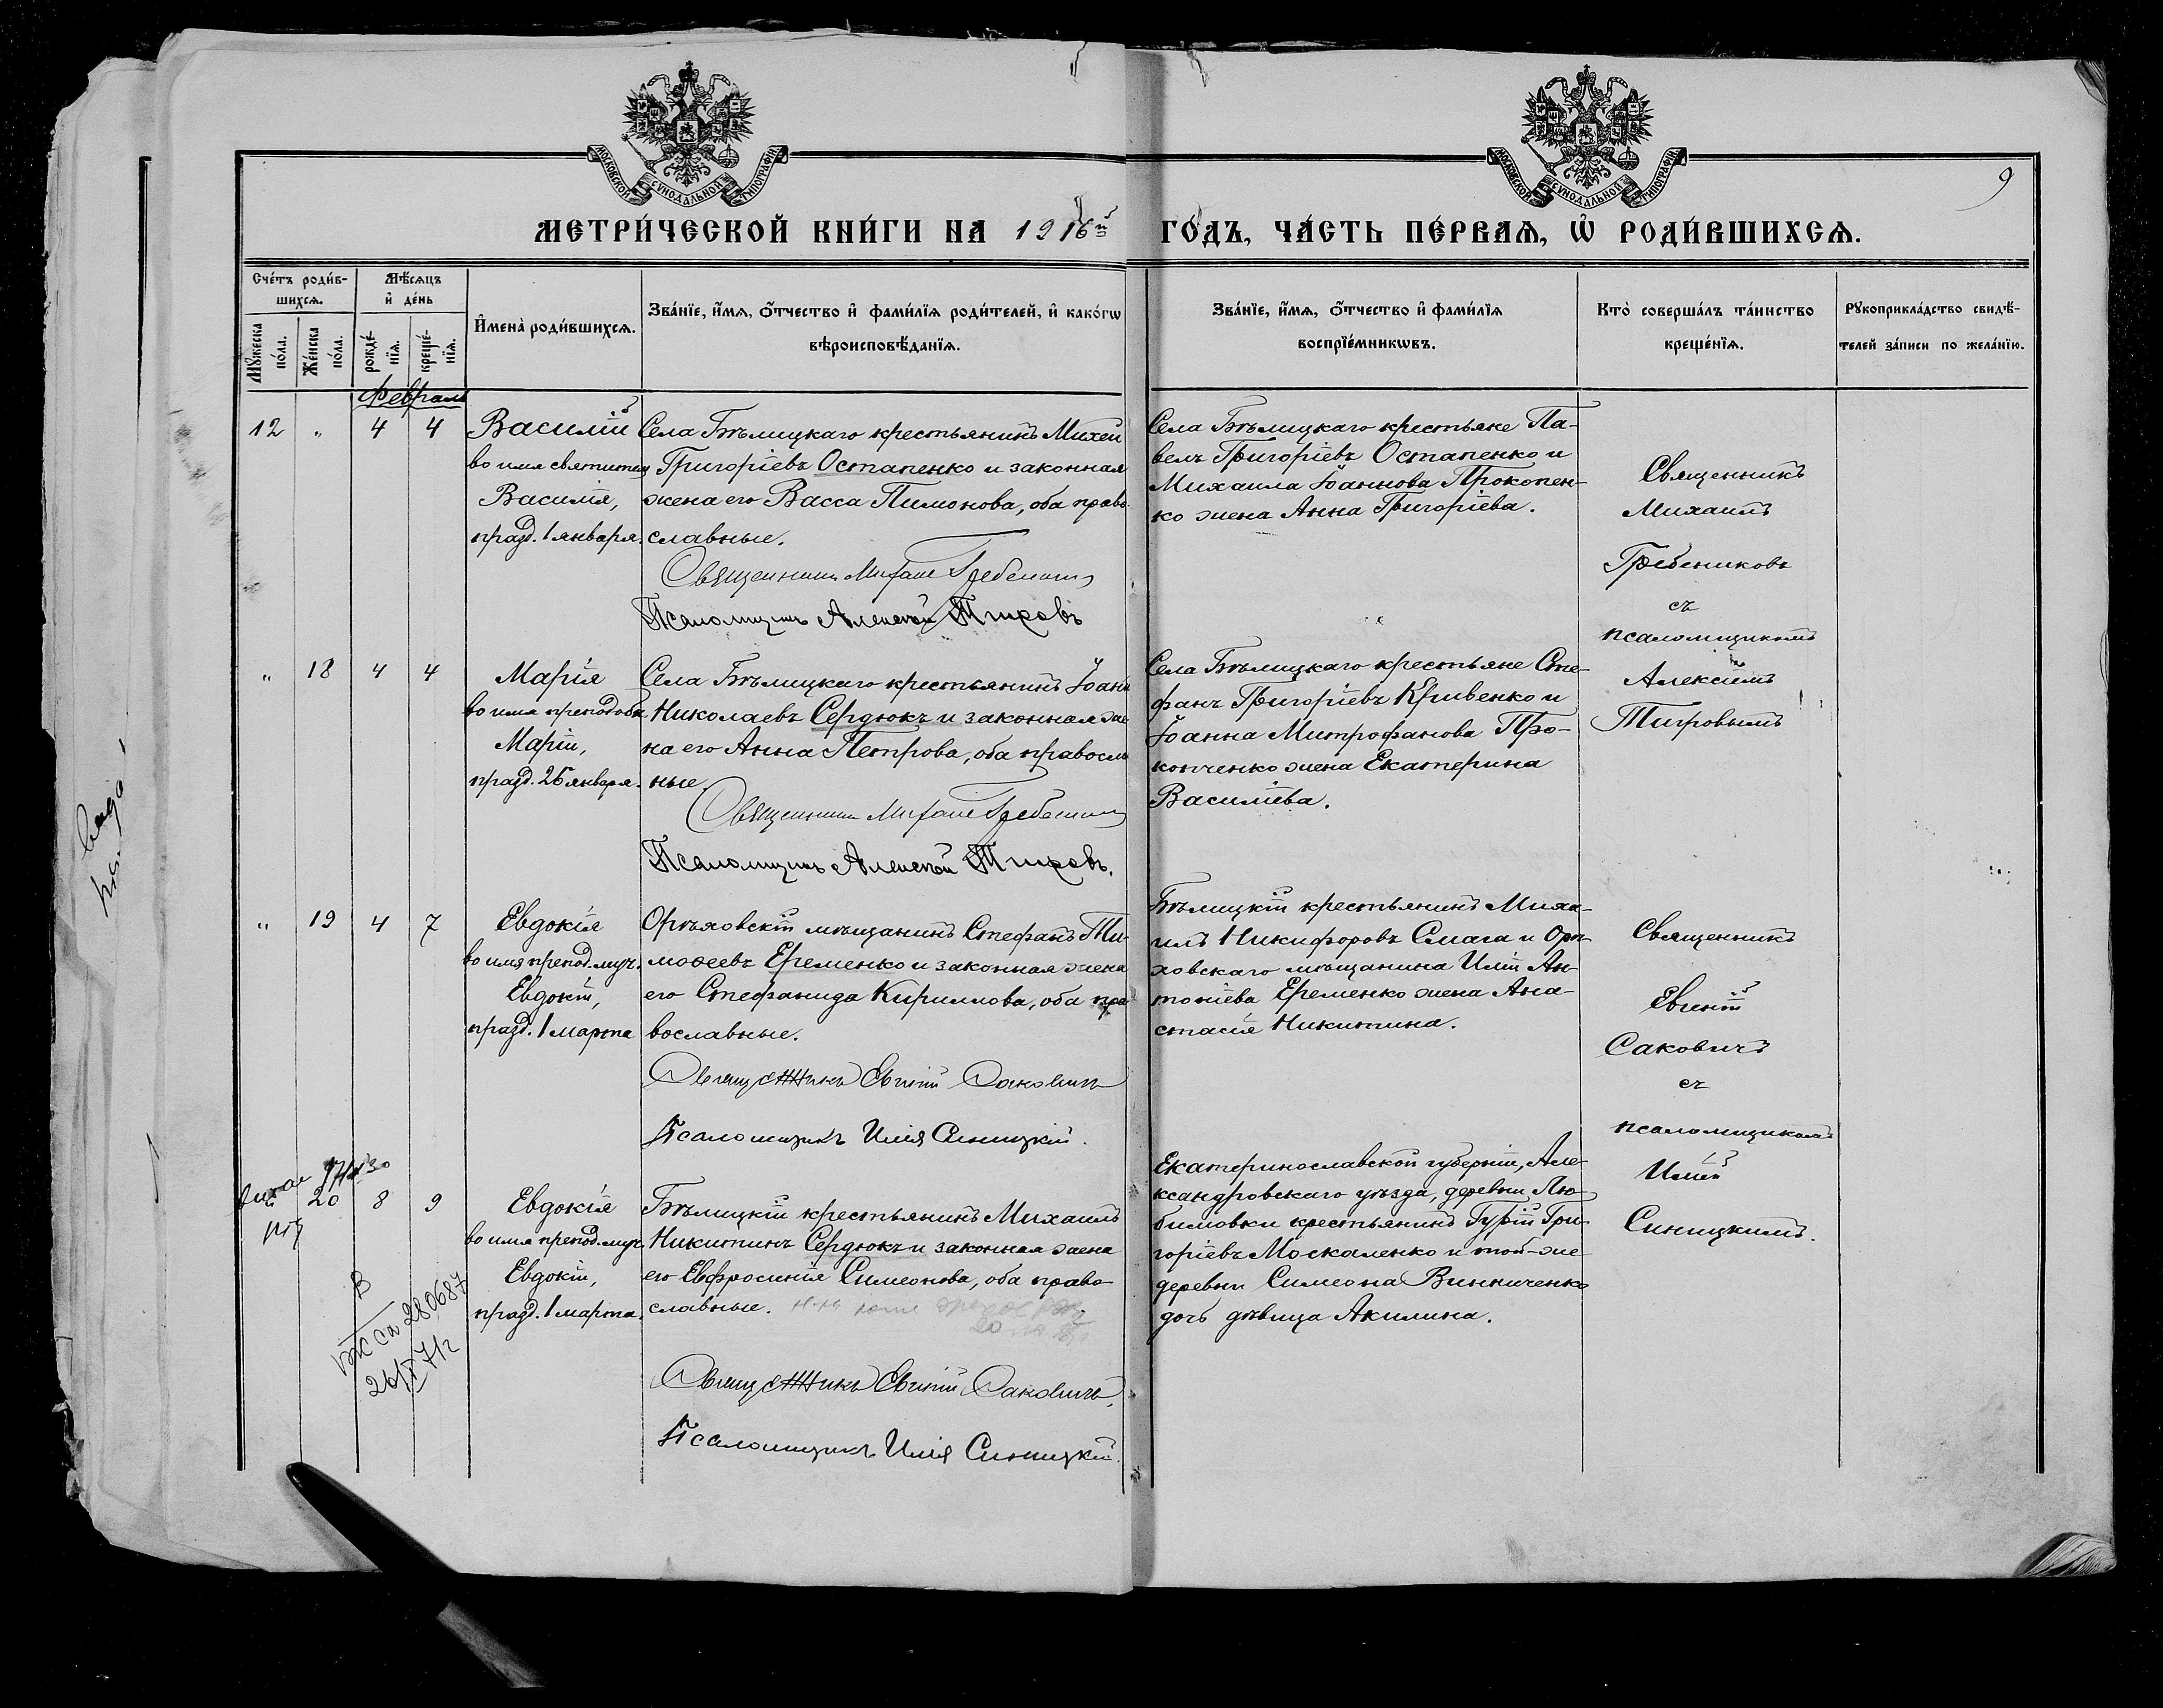 МОСКОВСКОЙ СѴНОДАЛЬНОЙ ТИПОГРАФІИ
МОСКОВСКОЙ СѴНОДАЛЬНОЙ ТИПОГРАФІИ
9
МЕТРИ́ЧЕСКОЙ КНИ́ГИ НА 1916й ГО́ДЪ, ЧА́СТЬ ПЕ́РВАѦ, Ѡ҆ РОДИ́ВШИХСѦ.
Сче́тъ роди́в-
шихсѧ.
Мѣ́сѧцъ
и҆ де́нь
Мꙋ́жеска
по́ла.
Же́нска
по́ла.
рожде́-
нїѧ.
креще́-
нїѧ.
И҆мена̀ роди́вшихсѧ.
Зва́нїе, и҆́мѧ, о҆́тчество и҆ фами́лїѧ роди́телей, и҆ како́гѡ
вѣроисповѣ́данїѧ.
Зва́нїе, и҆́мѧ, о҆́тчество и҆ фами́лїѧ
воспрїе́мникѡвъ.
Кто̀ соверша́лъ та́инство
креще́нїѧ.
Рꙋкоприкла́дство свидѣ́-
телей за́писи по жела́нїю.
Февраль
12 " 4 4
Василій
во имя святителя
Василія,
празд. 1 января.
Села Бѣлицкаго крестьянинъ Михей
Григоріевъ Остапенко и законная
жена его Васса Пимонова, оба право-
славные.
Священникъ Михаилъ Гребениковъ
Псаломщикъ Алексѣй Тигровъ
Села Бѣлицкаго крестьяне Па-
велъ Григоріевъ Остапенко и
Михаила Іоаннова Прокопен-
ко жена Анна Григоріева.
Священникъ
Михаилъ
Гребениковъ
съ
псаломщикомъ
Алексіемъ
Тигровымъ
" 18 4 4
Марія
во имя преподоб.
Маріи,
празд. 26 января.
Села Бѣлицкаго крестьянинъ Іоаннъ
Николаевъ Сердюкъ и законная же-
на его Анна Петрова, оба правосла
ные.
Священникъ Михаилъ Гребениковъ
Псаломщикъ Алексѣй Тигровъ.
Села Бѣлицкаго крестьяне Сте-
фанъ Григоріевъ Кривенко и
Іоанна Митрофанова Про-
копченко жена Екатерина
Василіева.
" 19 4 7
Евдокія
во имя препод. муч.
Евдокіи,
празд. 1 марта
Орѣховскій мѣщанинъ Стефанъ Ти-
моѳеевъ Еременко и законная жена
его Стефанида Кириллова, оба пра
вославные.
Священникъ Евгеній Саковичъ
Псаломщикъ Илія Синицкій.
Бѣлицкій крестьянинъ Миха-
илъ Никифоровъ Смага и Орѣ-
ховскаго мѣщанина Иліи Ан-
тоніева Еременко жена Ана-
стасія Никитина.
Священникъ
Евгеній
Саковичъ
съ
псаломщикомъ
Иліей
Синицкимъ.
20 8 9
Евдокія
во имя препод. муч.
Евдокіи,
празд. 1 марта.
Бѣлицкій крестьянинъ Михаилъ
Никитинъ Сердюкъ и законная жена
его Евфросинія Симеонова, оба право-
славные.
Священникъ Евгеній Саковичъ.
Псаломщикъ Илія Синицкій.
Екатеринославской губерніи, Але-
ксандровскаго уѣзда, деревни Лю-
бимовки крестьянинъ Гурій Гри-
горіевъ Москаленко и той-же
деревни Симеона Винниченко
дочь дѣвица Акилина.
280687